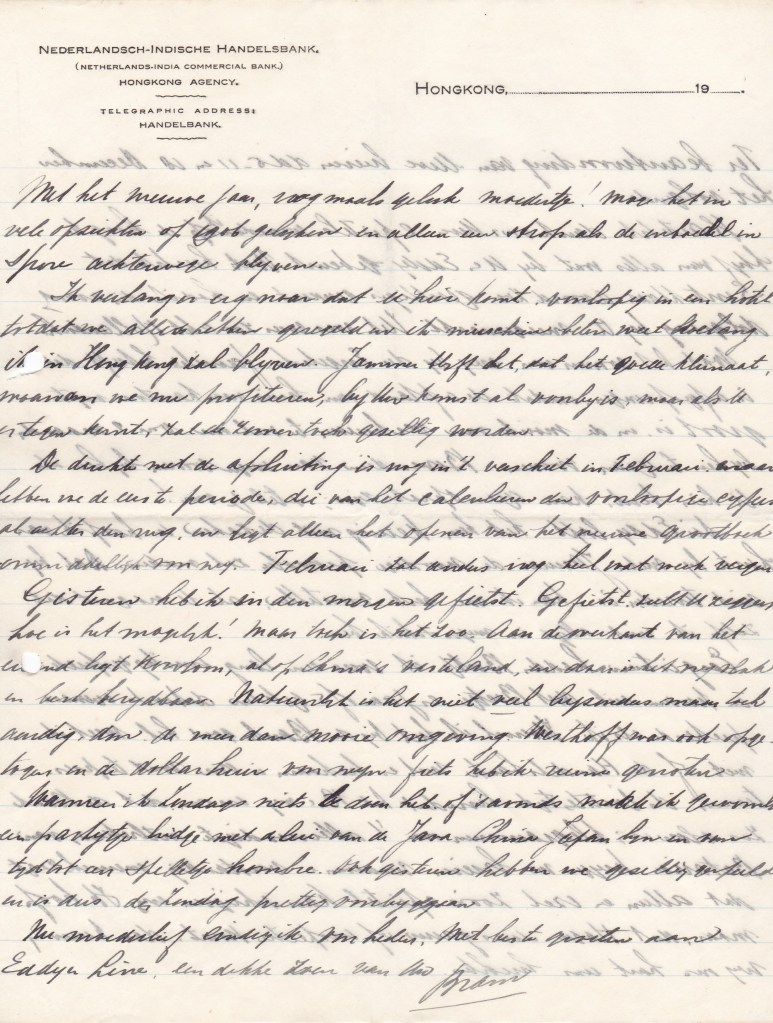 NEDERLANDSCH-INDISCHE HANDELSBANK.
(NETHERLANDS-INDIA COMMERCIAL BANK.)
HONGKONG AGENCY.
TELEGRAPHIC ADDRESS:
HANDELBANK.
HONGKONG, 19 .
Met het nieuwe jaar, nogmaals geluk moedertje! Moge het in
vele opzichten op 1906 gelijken en alleen een strop als de inboedel in
Spore achterwege blijven.
Ik verlang er erg naar dat U hier komt, voorloopig in een hotel
totdat we alles hebben geregeld en ik misschien beter weet hoelang
ik in Hong Kong zal blijven. Jammer blijft het, dat het goede klimaat,
waarvan we nu profiteeren, bij Uw komst al voorbij is, maar als U
er tegen kunt, zal de zomer toch gezellig worden.
De drukte met de afsluiting is nog in 't verschiet in Februari, maar
hebben we de eerste periode, die van het calculeeren der voorloopige cijfers
al achter den rug, en ligt alleen het openen van het nieuwe grootboek
onmiddellijk voor mij. Februari zal anders nog heel wat werk vergen
Gisteren heb ik in den morgen gefietst. Gefietst, zult U zeggen,
hoe is het mogelijk! Maar toch is het zoo. Aan de overkant van het
eiland ligt Kowloon, al op China's vasteland, en daar is het nog vlak
en best berijdbaar. Natuurlijk is het niet veel bijzonders maar toch
aardig, door de meer dan mooie omgeving. Westhoff was ook opge-
togen en de dollar huur van mijn fiets heb ik ruim genoten
Wanneer ik Zondags niets te doen heb of 's avonds maak ik gewoonlijk
een partijtje bridge met alein van de Java China Japan lijn en van
tijd tot een spelletje hombre. Ook gisteren hebben we gezellig
en is dus de Zondag prettig voorbijgegaan
Nu moederlief eindig ik voor heden. Met beste groeten aan
Eddy en Line, een dikke zoen van Uw
Bram